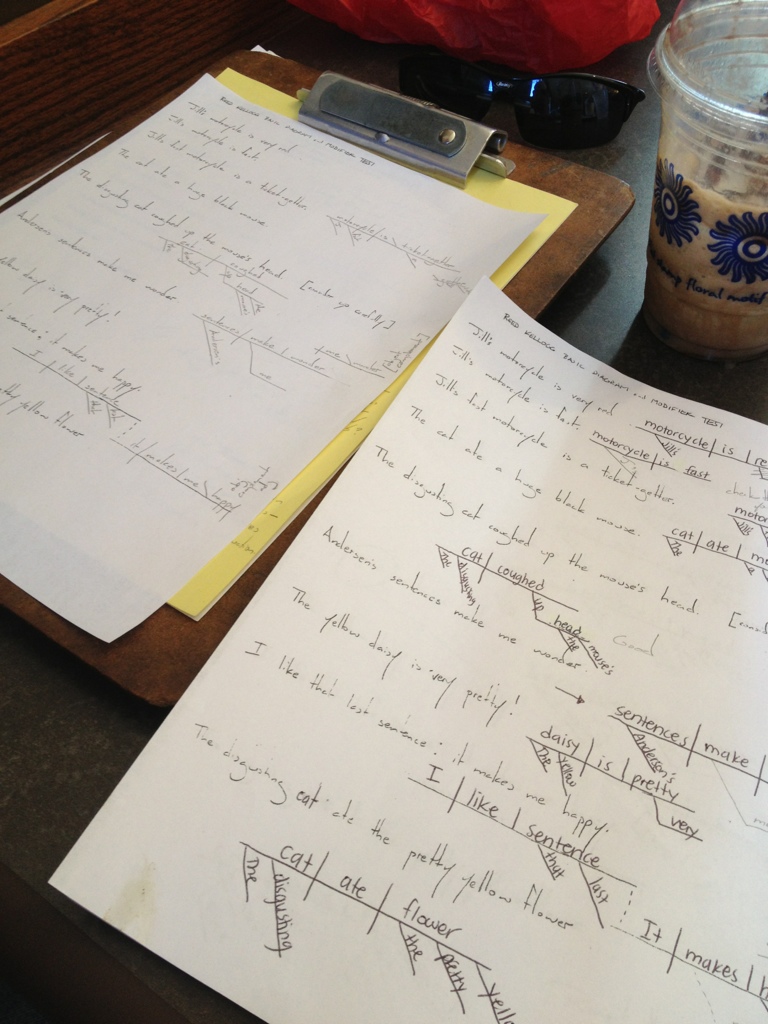 REED KELLOGG BASIC DIAGRAM and MODIFIER TEST
Jill's motorcycle is very red
Jill's motorcycle is fast.
Jill's fast motorcycle is a ticket-getter.
The cat ate a huge black mouse.
The disgusting cat coughed up the mouse's head
Andersen's sentences make me wonder
yellow daisy is very pretty!
sentence; it makes me happy
I like sentence
it makes me happy
pretty yellow flower
motorcycle is ticket-getter
cat coughed
head
sentences make wonder
me
REED KELLOGG BASIC DIAGRAM and MODIFIER TEST
Jill's motorcycle is very red.
motorcycle is
Jill's
Jill's motorcycle is fast.
motorcycle is fast
Jill's fast motorcycle is a ticket-getter.
Jill's
The cat ate a huge black mouse.
cat ate
The
The disgusting cat coughed up the mouse's head.
cat coughed
The disgusting up
head
the mouse's
Good
Andersen's sentences make me wonder.
sentences make
Andersen's
The yellow daisy is very pretty!
daisy is pretty
The yellow very
I like that last sentence; it makes me happy.
I like sentence
that last
It makes
The disgusting cat ate the pretty yellow flower
cat ate flower
The disgusting the pretty
floral motif